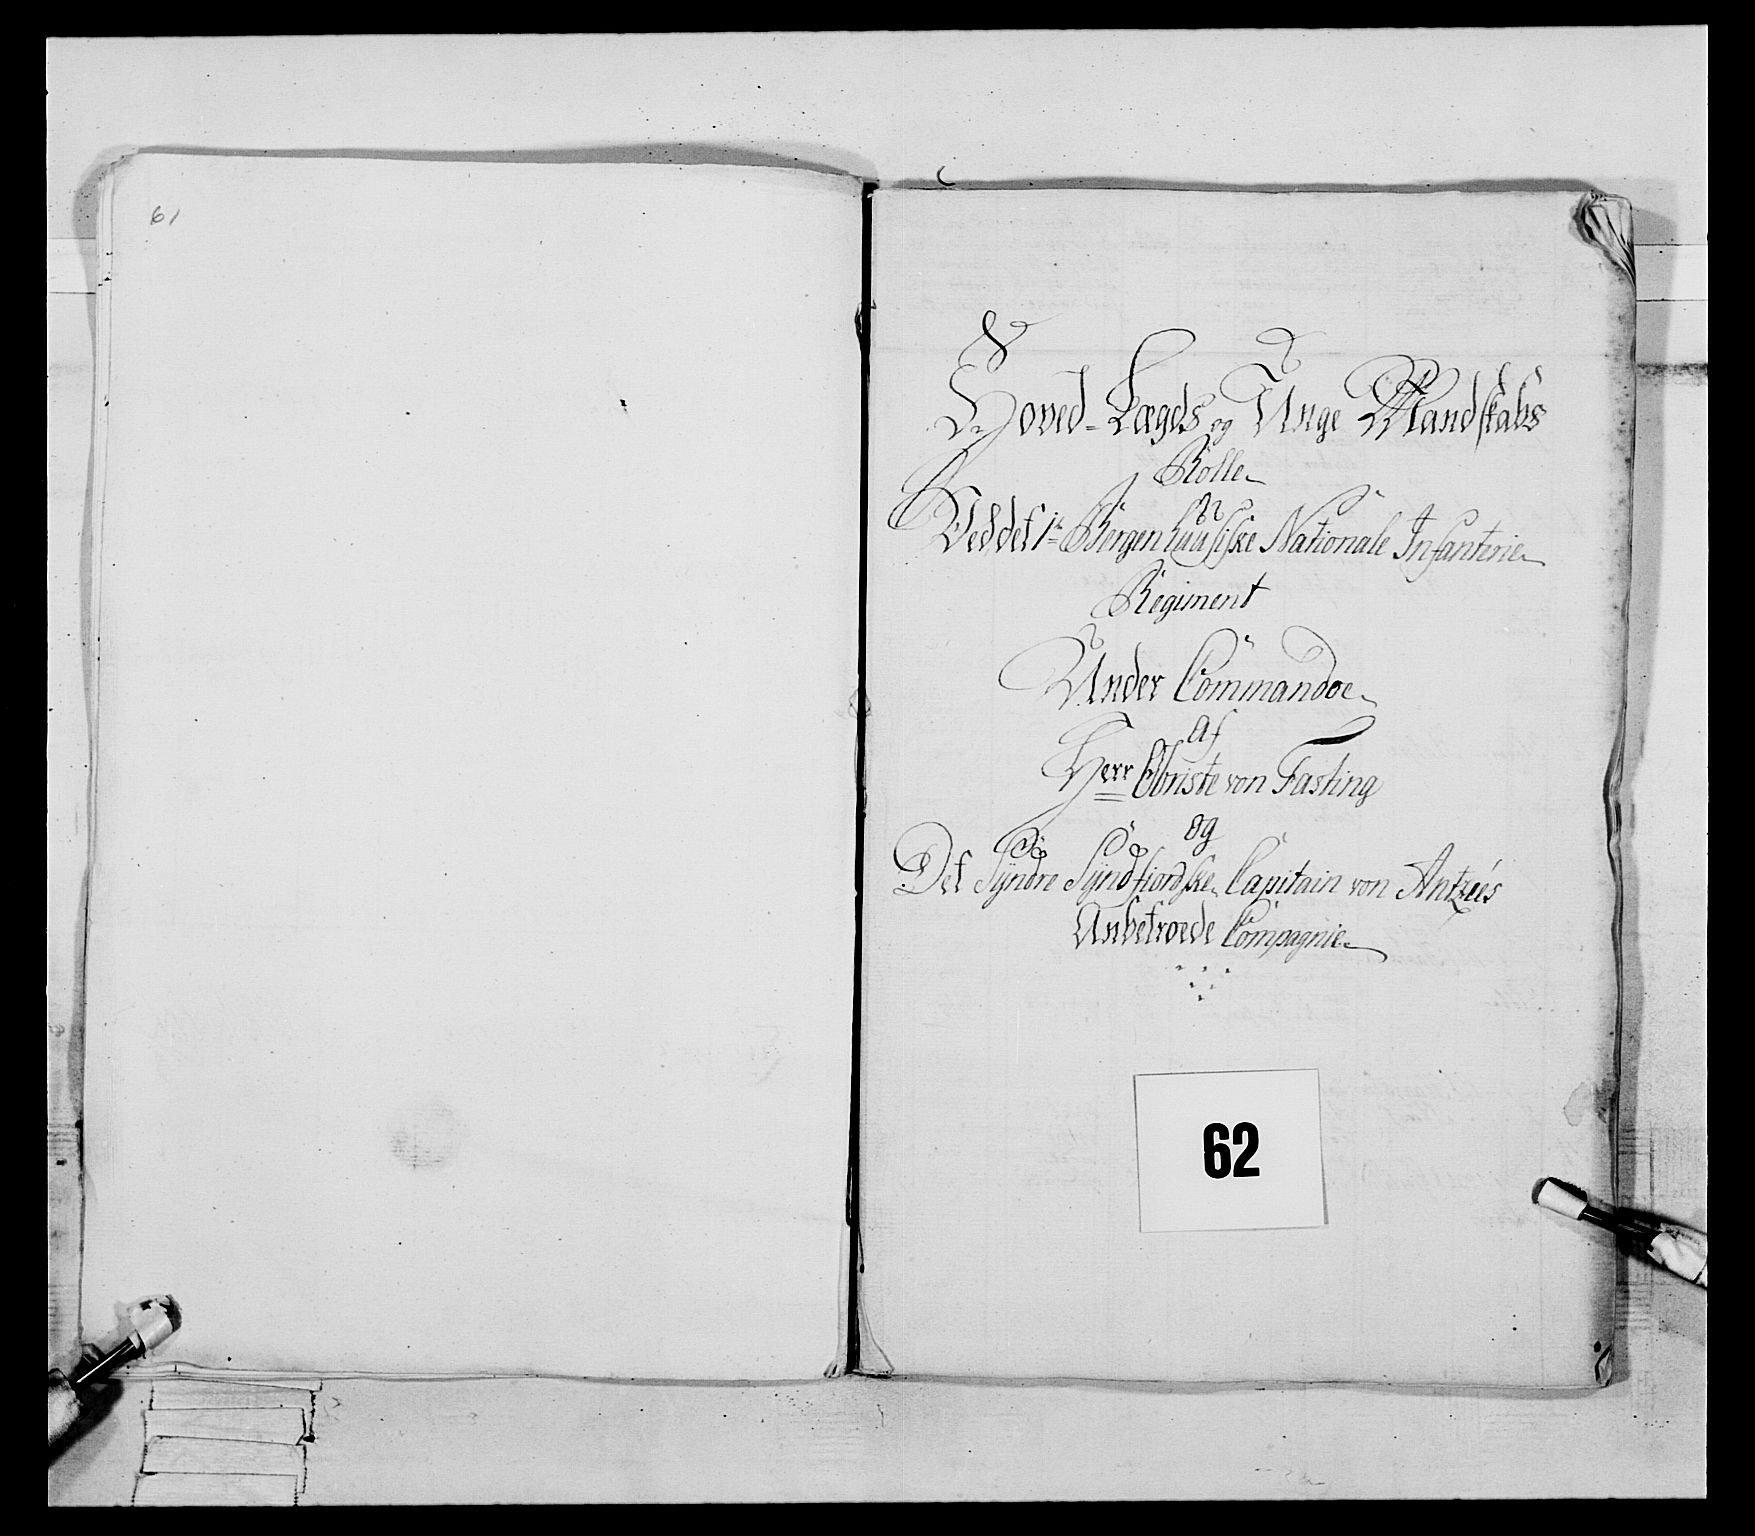 61
Hoved-Lægds og Unge Mandskabs
Rolle
Ved det 1te Bergenhuusiske Nationale Infanterie
Regiment
Under Commandoe
Af
Herr Obriste von Fasting
og
Det Syndre Syndfiordske Capitain von Antzées
Anbetroede Compagnie
62